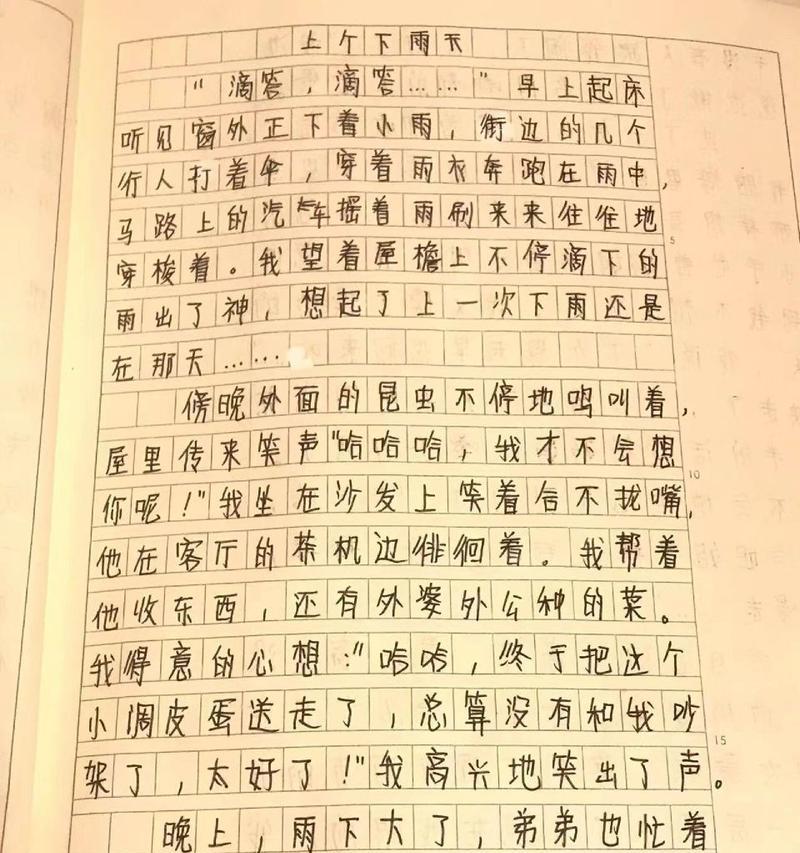 上个下雨天
“滴答，滴答……”早上起床
听见窗外正下着小雨，街边的几个
行人打着伞，穿着雨衣奔跑在雨中，
马路上的汽车摇着雨刷来来往往地
穿梭着。我望着屋檐上不停滴下的
雨出了神，想起了上一次下雨还是
在那天……
傍晚外面的昆虫不停地鸣叫着，
屋里传来笑声“哈哈哈，我才不会想
你呢！”我坐在沙发上笑着合不拢嘴，
他在客厅的茶机边徘徊着。我帮着
他收东西，还有外婆外公种的菜。
我得意的心想：“哈哈，终于把这个
小调皮蛋送走了，总算没有和我吵
架了，太好了！”我高兴地笑出了声。
晚上，雨下大了，弟弟也忙着